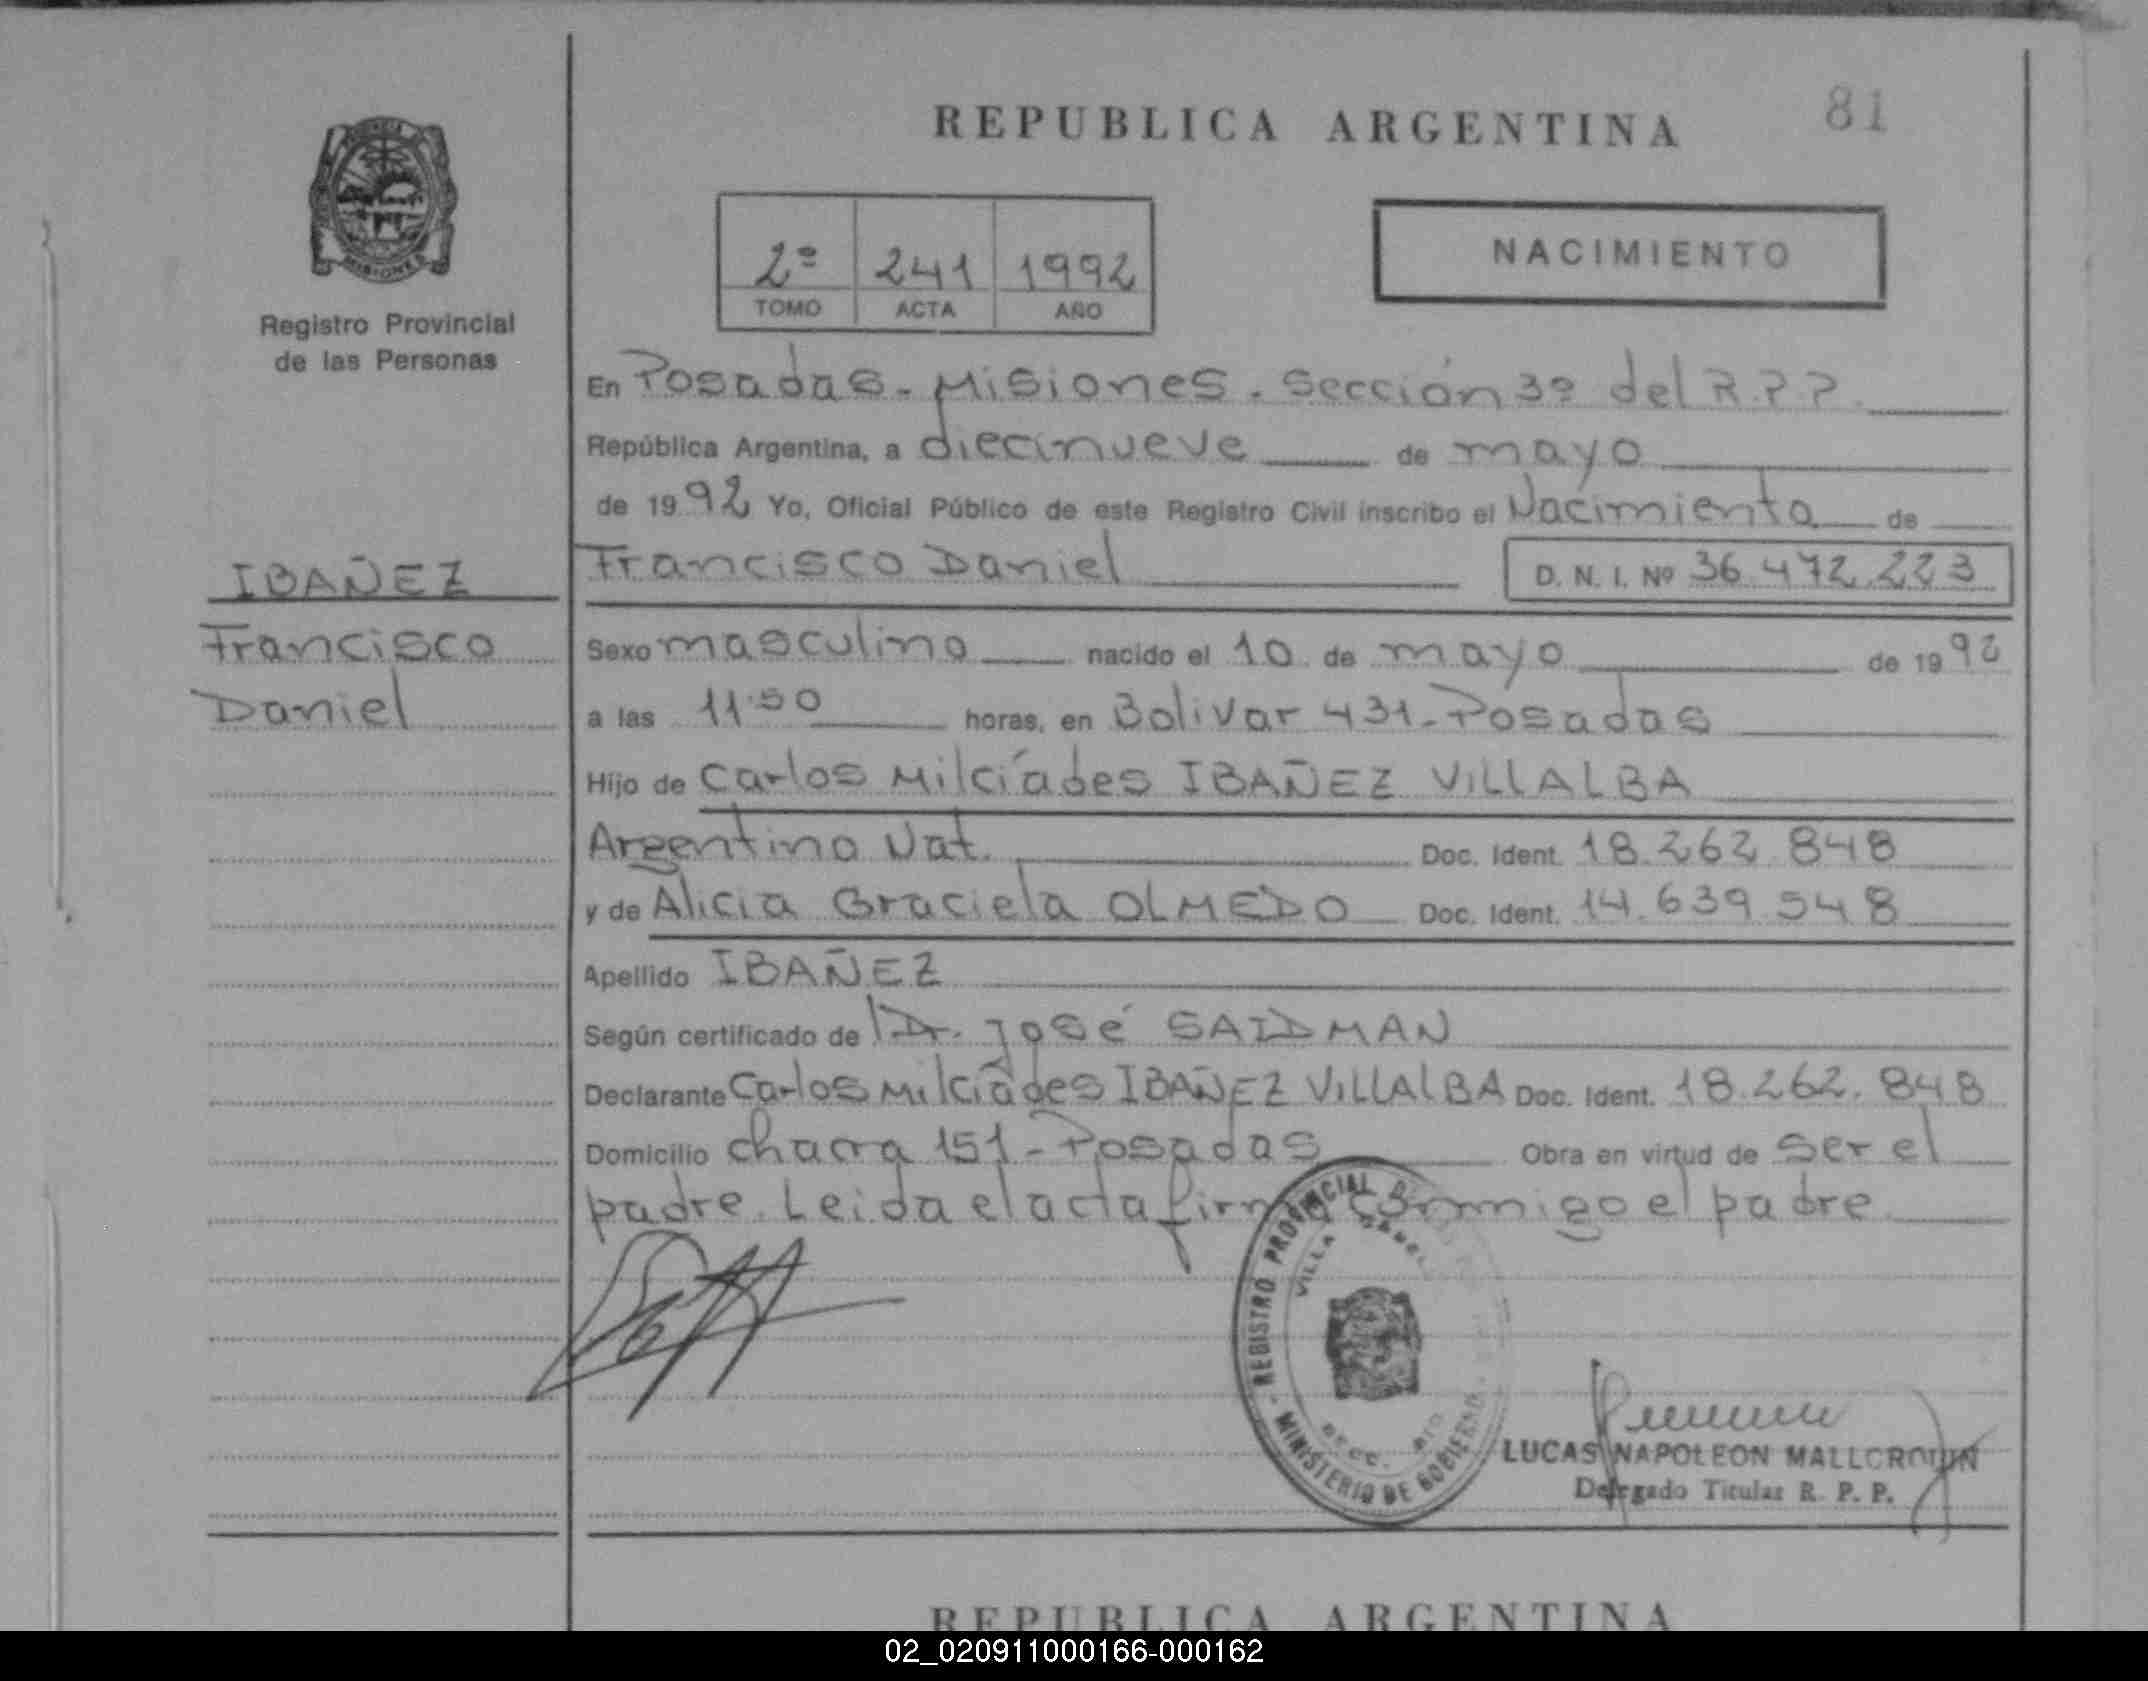 REPUBLICA ARGENTINA
81
MISIONES
Registro Provincial
de las Personas
2º 241 1992
TOMO ACTA AÑO
NACIMIENTO
En Posadas - Misiones - Sección 3º del R.P.P.
República Argentina, a diecinueve de mayo
de 1992 Yo, Oficial Público de este Registro Civil inscribo el Nacimiento de
IBAÑEZ
Francisco
Daniel
Francisco Daniel D. N. I. Nº 36.472.223
Sexo masculino nacido el 10 de mayo de 1992
a las 11:50 horas, en Bolivar 431 - Posadas
Hijo de Carlos Milcíades IBAÑEZ VILLALBA
Argentino Nat. Doc. Ident. 18.262.848
y de Alicia Graciela OLMEDO Doc. Ident. 14.639.548
Apellido IBAÑEZ
Según certificado de Dr. José SAIDMAN
Declarante Carlos Milcíades IBAÑEZ VILLALBA Doc. Ident. 18.262.848
Domicilio chacra 151 - Posadas Obra en virtud de ser el
padre. Leida el acta firma conmigo el padre
REGISTRO PROVINCIAL D
VILLA
SECC.
MINISTERIO DE GOBIERNO
LUCAS NAPOLEON MALLORQUIN
Delegado Titular R. P. P.
REPUBLICA ARGENTINA
02_020911000166-000162